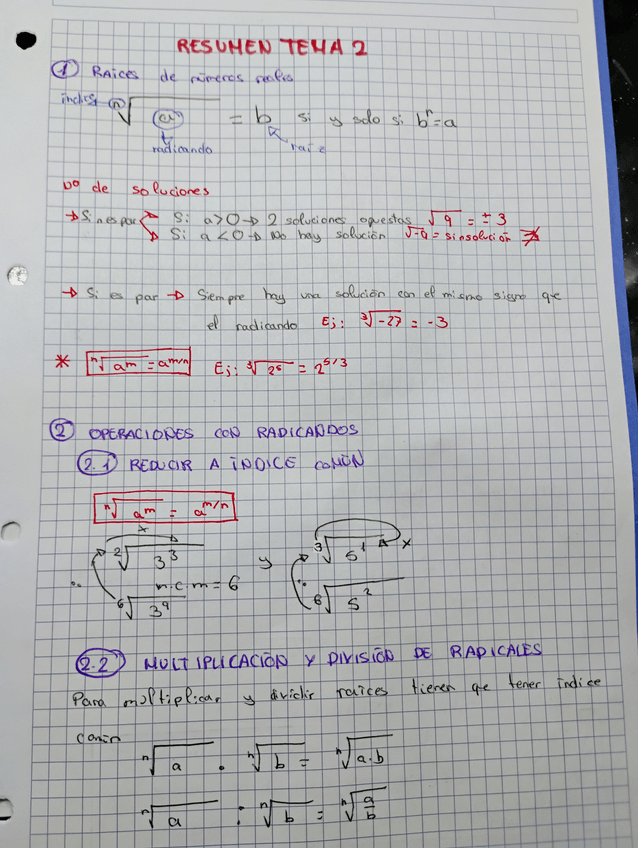 RESUMEN TEMA 2
① RAICES de números reales
índice ⁿ√a = b si y solo si bⁿ=a
radicando raíz
Nº de soluciones
→ Si n es par Si a>0 → 2 soluciones opuestas √9 = ±3
Si a<0 → No hay solución √-9 = sin solución ∄
→ Si es par → Siempre hay una solución con el mismo signo que
el radicando Ej: ³√-27 = -3
* ⁿ√aᵐ = a^m/n Ej: ³√2⁵ = 2^5/3
② OPERACIONES CON RADICANDOS
2.1 REDUCIR A ÍNDICE COMÚN
ⁿ√aᵐ = a^m/n
x
²√3³ y ³√5¹ x
m.c.m = 6
⁶√3⁹ ⁶√5²
2.2 MULTIPLICACIÓN Y DIVISIÓN DE RADICALES
Para multiplicar y dividir raíces tienen que tener índice
común
ⁿ√a · ⁿ√b = ⁿ√a·b
ⁿ√a : ⁿ√b = ⁿ√a/b